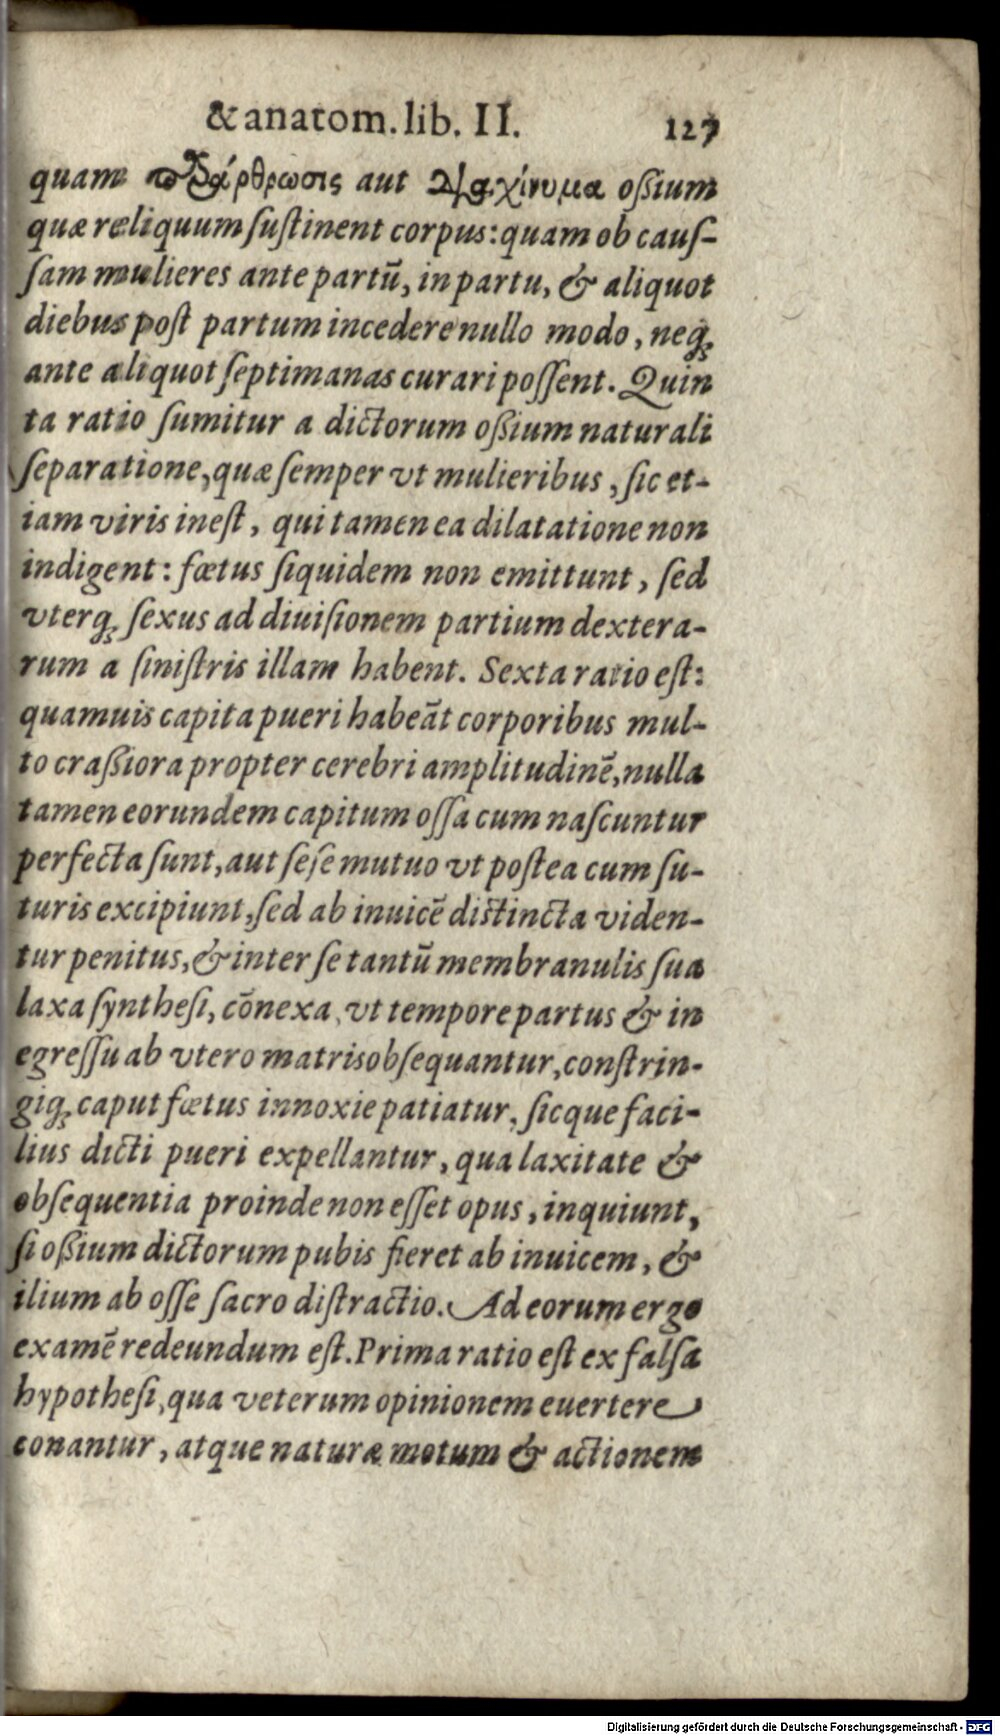 & anatom. lib. II. 127
quam παράρθρωσις aut διακίνημα oßium
quæ reliquum ſuſtinent corpus: quam ob cauſ-
ſam mulieres ante partū, in partu, & aliquot
diebus poſt partum incedere nullo modo, neq;
ante aliquot ſeptimanas curari poſſent. Quin
ta ratio ſumitur a dictorum oßium naturali
ſeparatione, quæ ſemper vt mulieribus, ſic et-
iam viris ineſt, qui tamen ea dilatatione non
indigent: fœtus ſiquidem non emittunt, ſed
vterq; ſexus ad diuiſionem partium dextera-
rum a ſiniſtris illam habent. Sexta ratio eſt:
quamuis capita pueri habeāt corporibus mul-
to craßiora propter cerebri amplitudinē, nulla
tamen eorundem capitum oſſa cum naſcuntur
perfecta ſunt, aut ſeſe mutuo vt poſtea cum ſu-
turis excipiunt, ſed ab inuicē diſtincta viden-
tur penitus, & inter ſe tantū membranulis ſua
laxa ſyntheſi, cōnexa, vt tempore partus & in
egreſſu ab vtero matris obſequantur, conſtrin-
giq; caput fœtus innoxie patiatur, ſicque faci-
lius dicti pueri expellantur, qua laxitate &
obſequentia proinde non eſſet opus, inquiunt,
ſi oßium dictorum pubis fieret ab inuicem, &
ilium ab oſſe ſacro diſtractio. Ad eorum ergo
examē redeundum eſt. Prima ratio eſt ex falſa
hypotheſi, qua veterum opinionem euertere
conantur, atque naturæ motum & actionem
Digitalisierung gefördert durch die Deutsche Forschungsgemeinschaft - DFG